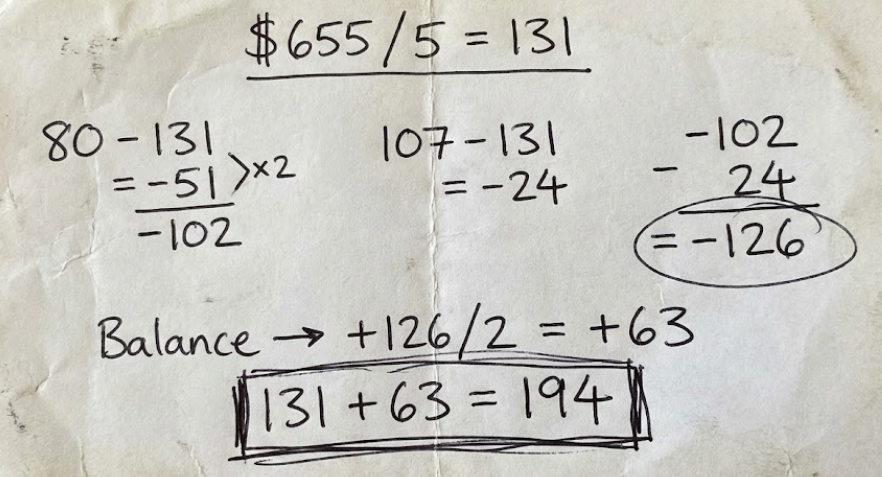 $655/5 = 131
80 - 131
= -51 >×2
-102
107 - 131
= -24
-102
- 24
= -126
Balance → +126/2 = +63
131 + 63 = 194